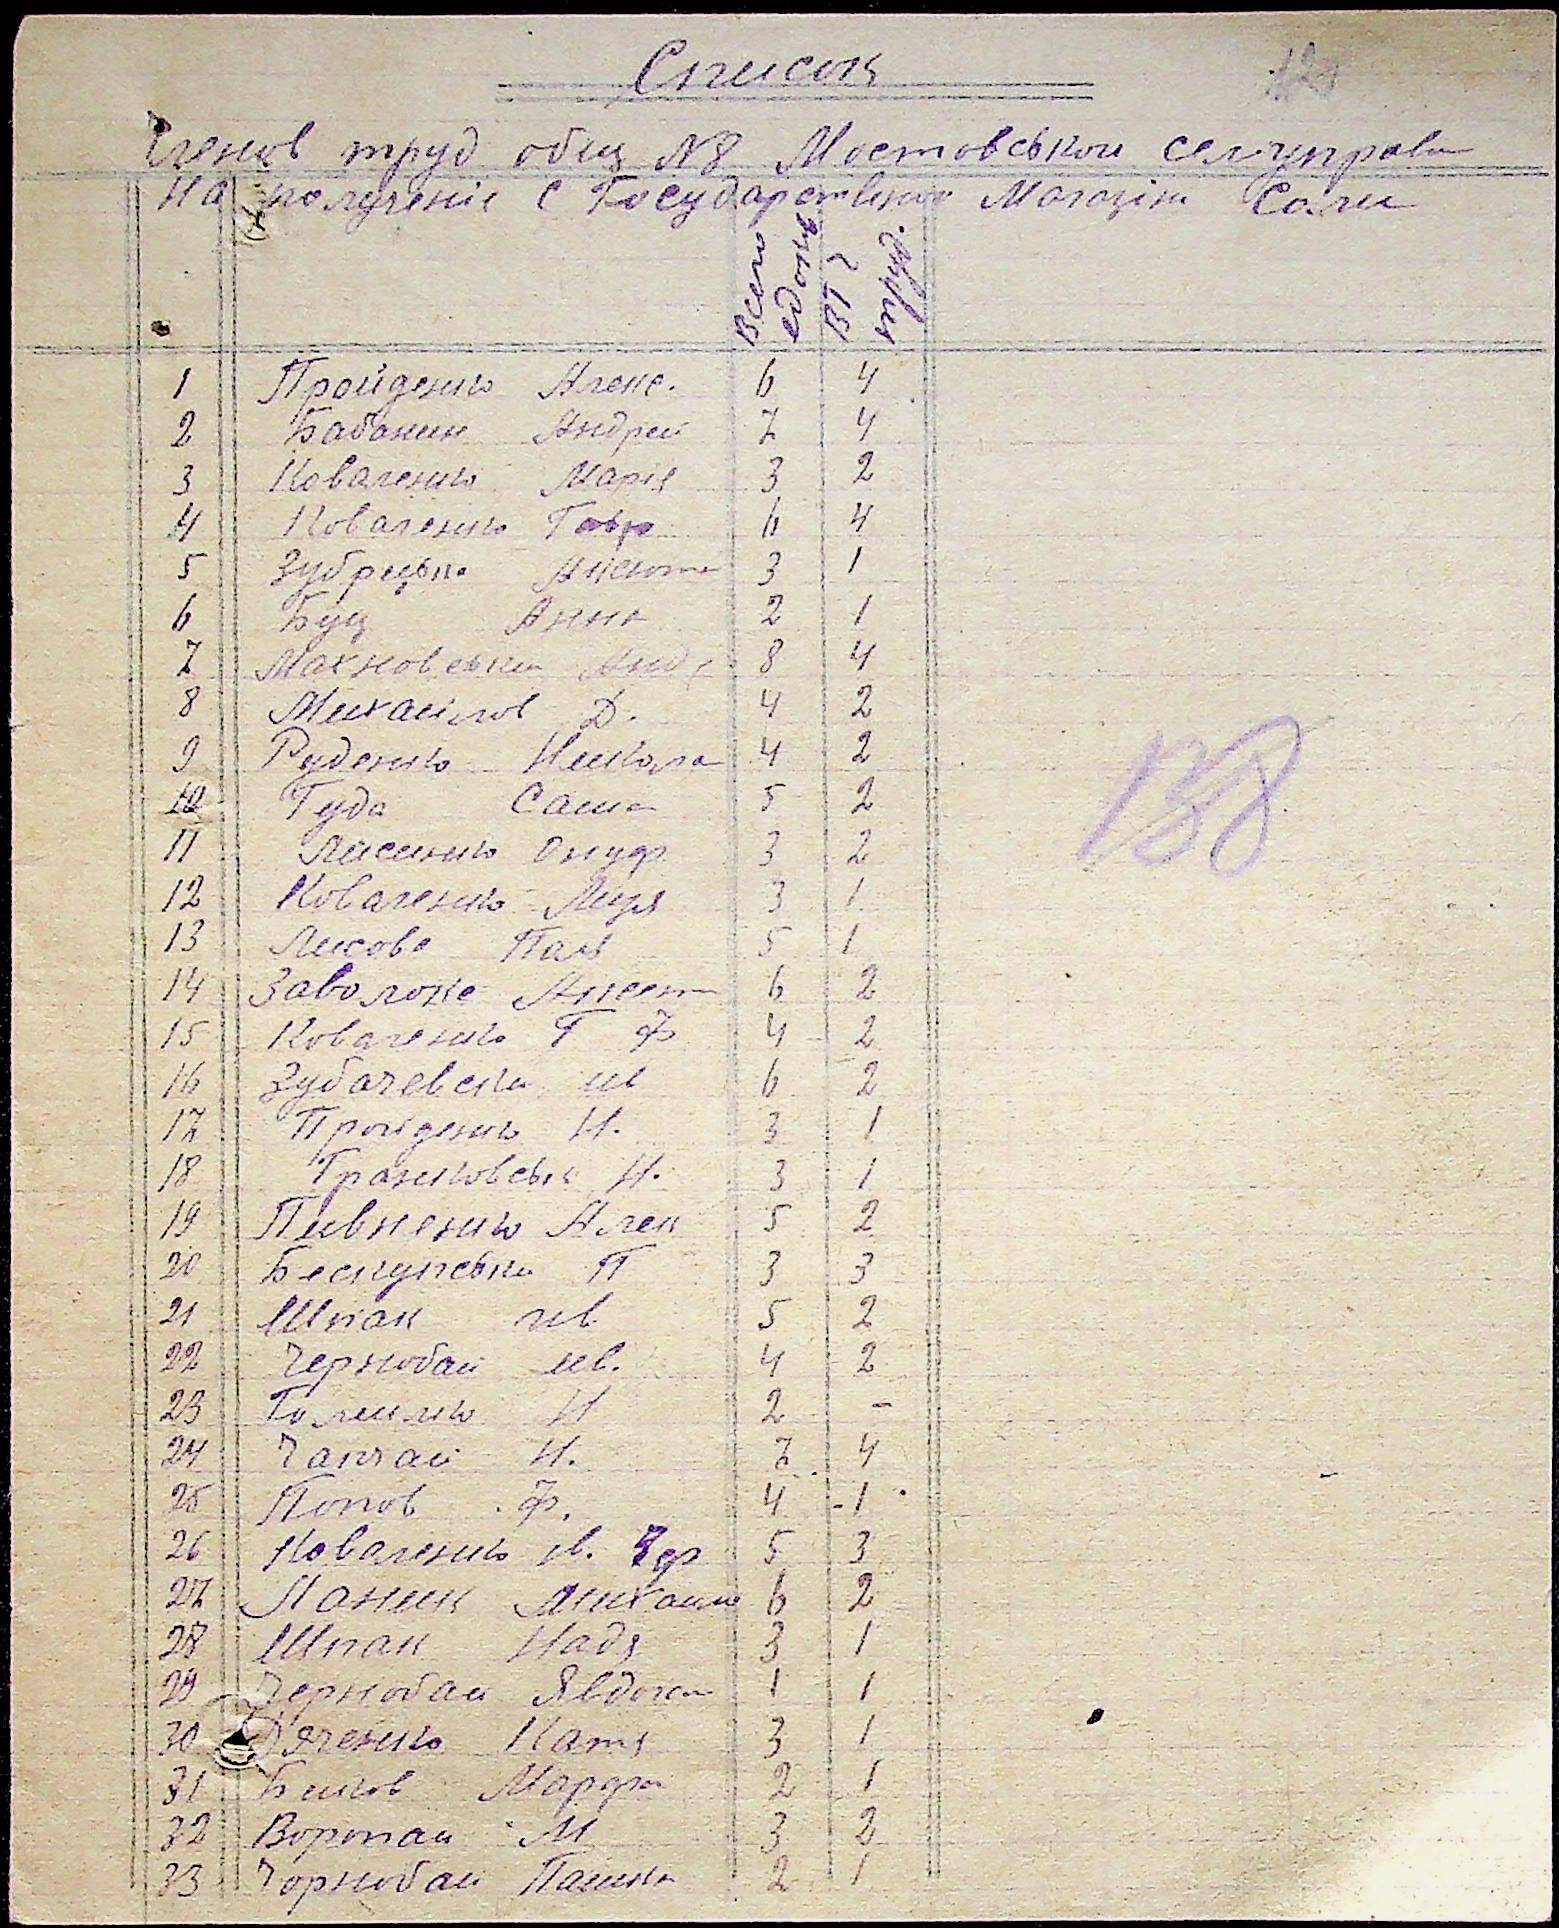 Список
Членов труд общ N8 Мостовськои селуправи
На получение с Государствено Магозіна Соли
Всего едоков
В т ч
1 Пройденко Алекс. 6 4
2 Бабанин Андрей 7 4
3 Коваленко Марія 3 2
4 Коваленко 6 4
5 Зубрецька Аксюта 3 1
6 Буц Анна 2 1
7 Махновськи Анд 8 4
8 Михайлов Д. 4 2
9 Руденко Никола 4 2
10 Гуда Саша 5 2
11 Лисенко Онуфр 3 2
12 Коваленко 3 1
13 Лисова Пал 5 1
14 Заволоке Аксент 6 2
15 Коваленко Г Ф 4 2
16 Зубачевски ив 6 2
17 Пройденко Н. 3 1
18 Н. 3 1
19 Пивненко Алек 5 2
20 П 3 3
21 Шпак ив 5 2
22 Чернобай ив. 4 2
23 Н 2 -
24 Чапчай Н. 7 4
25 Попов Ф. 4 -1
26 Коваленко ів. 5 3
27 Панин Михаил 6 2
28 Шпак Надя 3 1
29 Чернобай Явдоха 1 1
30 Дяченко Катя 3 1
31 Биков Марфа 2 1
32 Воропай М 3 2
33 Чорнобай Пашка 2 1
138